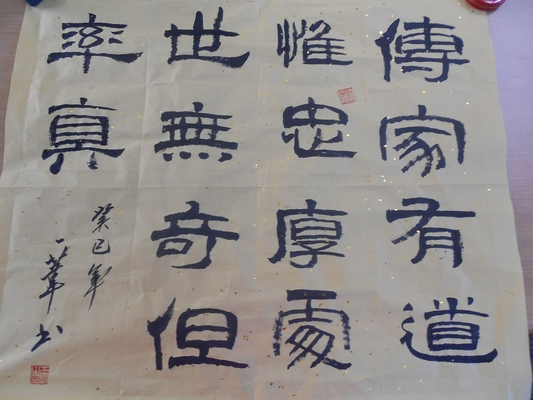 傳家有道
惟忠厚處
世無奇但
率真
癸巳年
一葦书